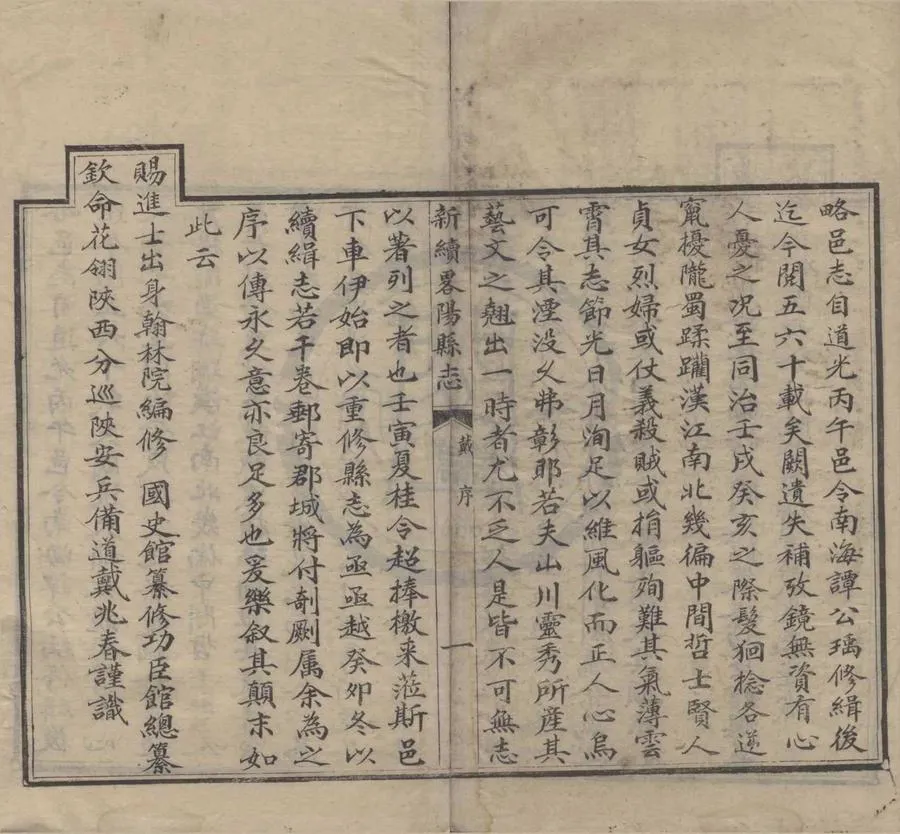 略邑志自道光丙午邑令南海譚公瑀修緝後
迄今閱五六十載矣闕遺失補攷鏡無資有心
人憂之况至同治壬戌癸亥之際髮狪捻各逆
竄擾隴蜀蹂躪漢江南北幾徧中間哲士賢人
貞女烈婦或仗義殺賊或捐軀殉難其氣薄雲
霄其志節光日月洵足以維風化而正人心烏
可令其湮没久弗彰耶若夫山川靈秀所産其
藝文之翹出一時者尤不乏人是皆不可無志
新續畧陽縣志
戴序
一
以著列之者也壬寅夏桂令超捧檄来蒞斯邑
下車伊始即以重修縣志為亟亟越癸夘冬以
續緝志若干卷郵寄郡城將付剞劂属余為之
序以傳永久意亦良足多也爰樂叙其顛末如
此云
賜進士出身翰林院編修 國史館纂修功臣館總纂
欽命花翎陝西分巡陝安兵備道戴兆春謹識